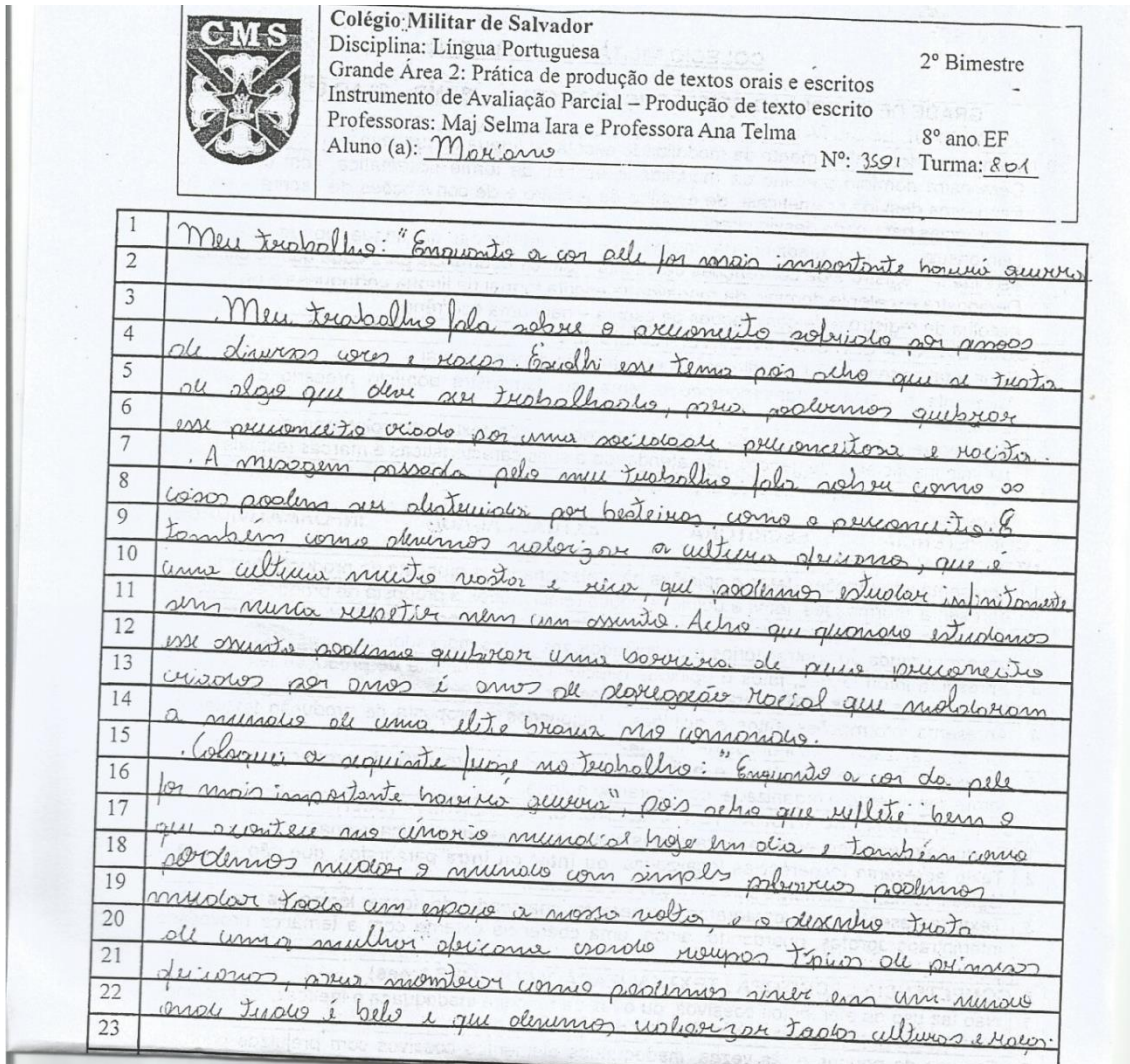 CMS
Colégio Militar de Salvador
Disciplina: Língua Portuguesa
2º Bimestre
Grande Área 2: Prática de produção de textos orais e escritos
Instrumento de Avaliação Parcial – Produção de texto escrito
Professoras: Maj Selma Iara e Professora Ana Telma
8º ano EF
Aluno (a): Mariana
Nº: 3591 Turma: 801
1 Meu trabalho: "Enquanto a cor
2 pele for mais importante haverá guerra
3 . Meu trabalho fala sobre o preconceito sofrido por pessoas
4 de diversas cores e raças. Escolhi esse tema pois acho que se trata
5 de algo que deve ser trabalhado, para podermos quebrar
6 esse preconceito criado por uma sociedade preconceitosa e racista.
7 . A mensagem passada pelo meu trabalho fala sobre como as
8 coisas podem ser destruidas por besteiras, como o preconceito. E
9 também como devemos valorizar a cultura africana, que é
10 uma cultura muito vasta e rica, que podemos estudar infinitamente
11 sem nunca repetir nem um assunto. Acho que quando estudamos
12 esse assunto podemos quebrar uma barreira de puro preconceito
13 criados por anos é anos de segregação racial que moldaram
14 a mundo de uma elite branca no comando.
15 . Coloquei a seguinte frase no trabalho: "Enquanto a cor da pele
16 for mais importante haverá guerra" pois acho que reflete bem o
17 que acontece no cenário mundial hoje em dia e também como
18 podemos mudar o mundo com simples palavras podemos
19 mudar todo um espaço a nossa volta, e o desenho trata
20 de uma mulher africana usando roupas típicas de
21 africanas, para como podemos viver em um mundo
22 onde tudo é belo e que devemos valorizar todas culturas e raças.
23